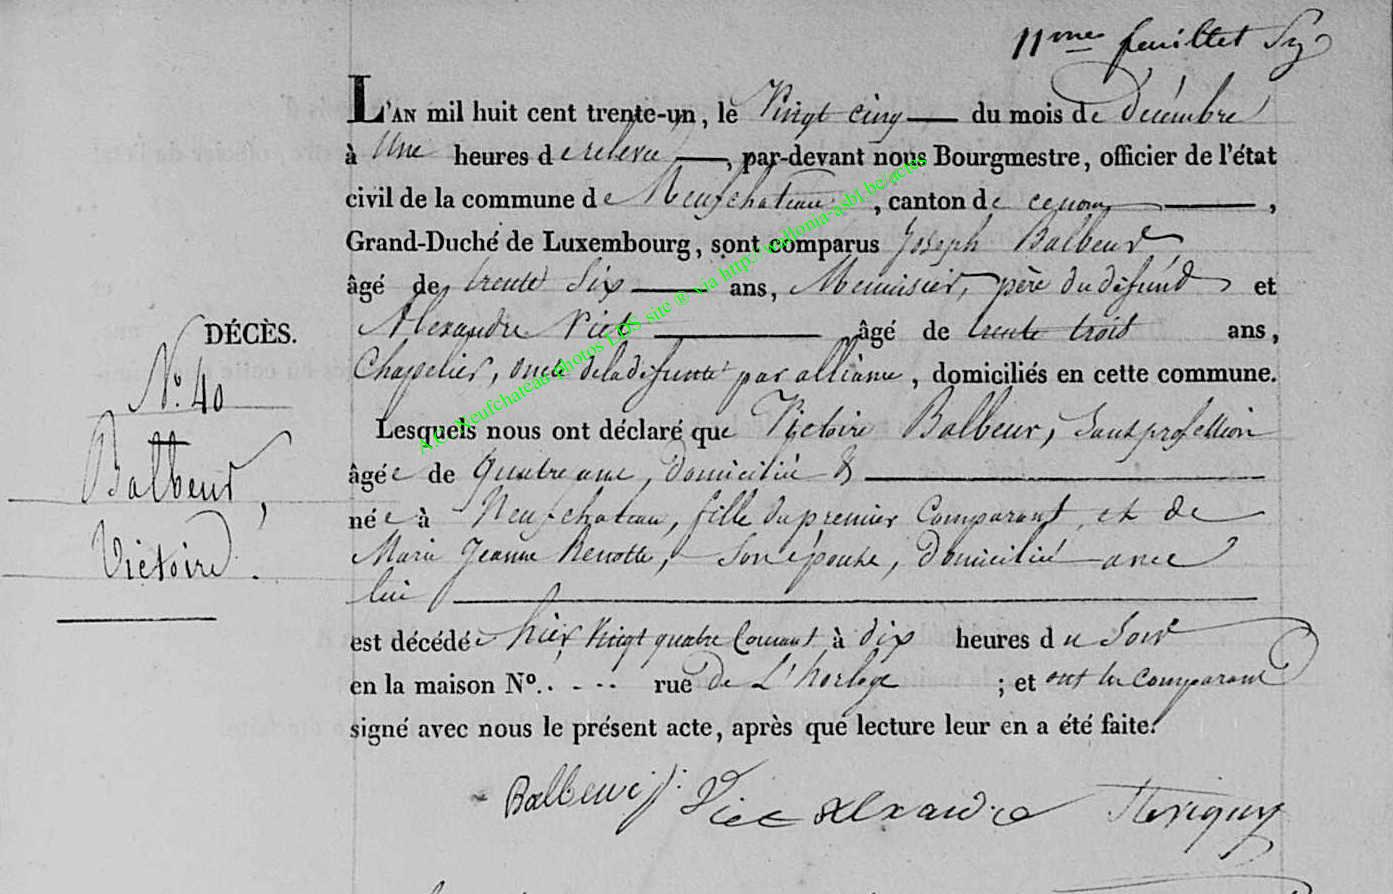 11me feuillet
L'AN mil huit cent trente-un, le Vingt cinq du mois de décembre
à Une heures de relevée, par-devant nous Bourgmestre, officier de l'état
civil de la commune de Neufchateau, canton de ce nom,
Grand-Duché de Luxembourg, sont comparus Joseph Balbeur
âgé de trente six ans, Menuisier, père du défunt et
Alexandre Piet âgé de trente trois ans,
Chapelier, oncle de la défunte par alliance, domiciliés en cette commune.
DÉCÈS.
N.º 40
Balbeur,
Victoire.
Lesquels nous ont déclaré que Victoire Balbeur, Sans profession
âgée de Quatre ans, Domiciliée
née à Neufchateau, fille du premier Comparant et de
Marie Jeanne Renotte, Son épouse, Domicilié avec
lui
est décédée hier Vingt quatre Courant à dix heures du Soir
en la maison Nº. . - - - rue de L'horloge ; et ont les Comparans
signé avec nous le présent acte, après que lecture leur en a été faite.
Balbeur j:
Alexandre
A.C. Neufchateau photos LDS site ® via http://wallonia-asbl.be/actes